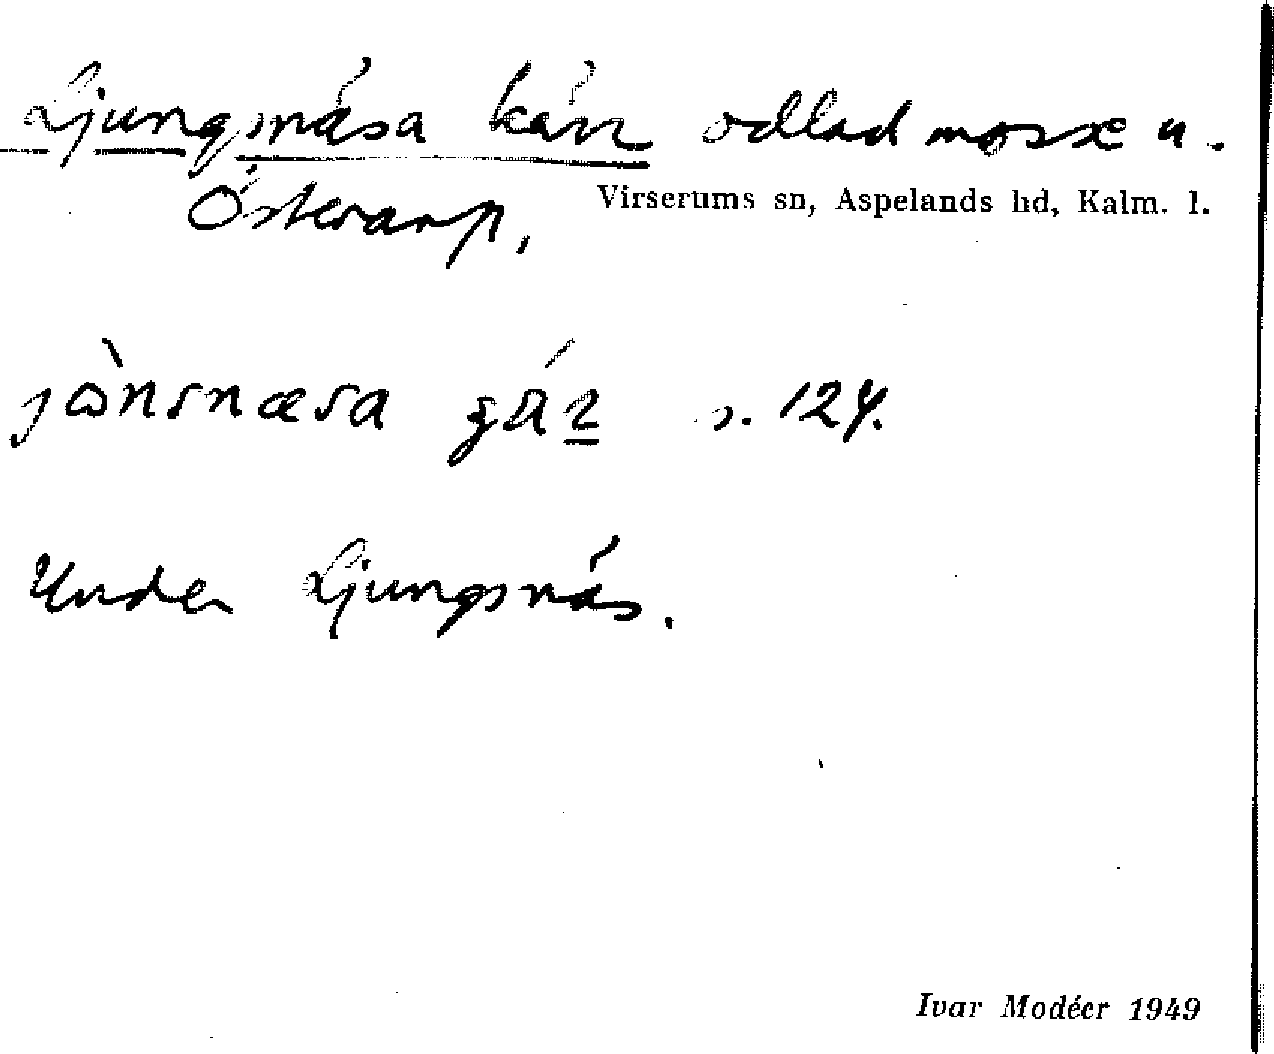 Ljungsnäsa kärr odlad mosse u.
Österarp,
Virserums sn, Aspelands hd, Kalm. l.
s. 124.
Under Ljungsnäs.
Ivar Modéer 1949